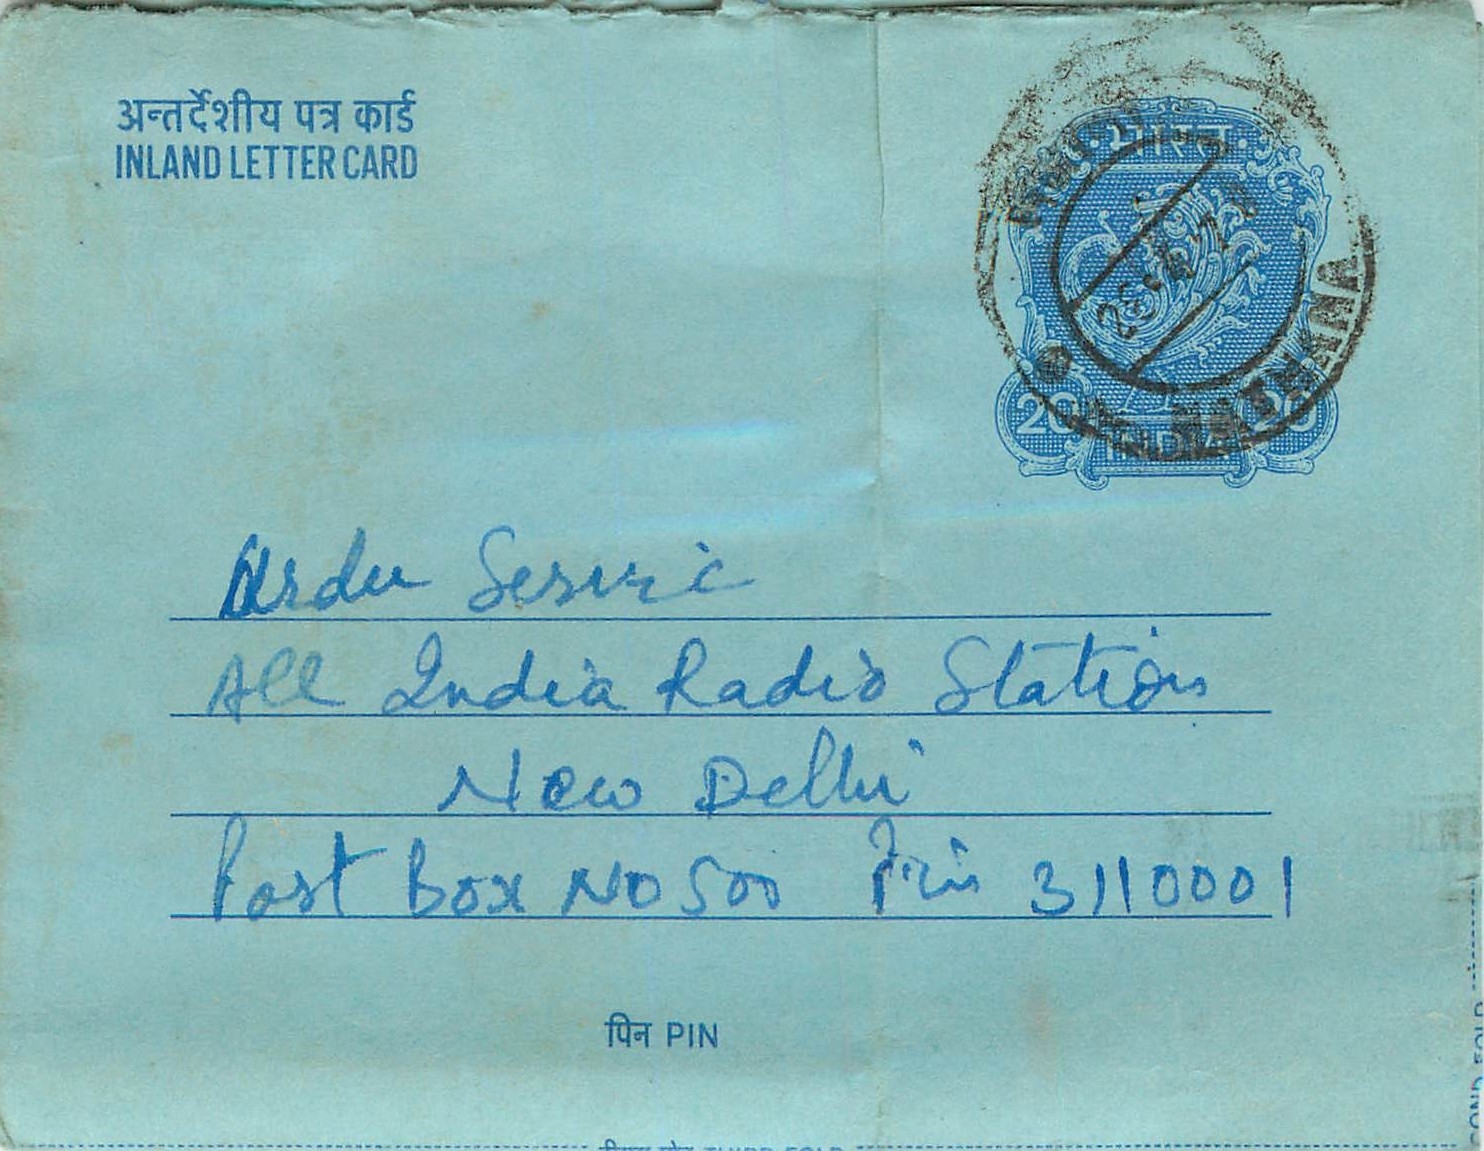 अन्तर्देशीय पत्र कार्ड
INLAND LETTER CARD
भारत
20 20
INDIA
Urdu Servic
All India Radio Station
New Delhi
Post Box No 500 Pin 3110001
पिन PIN
THIRD FOLD